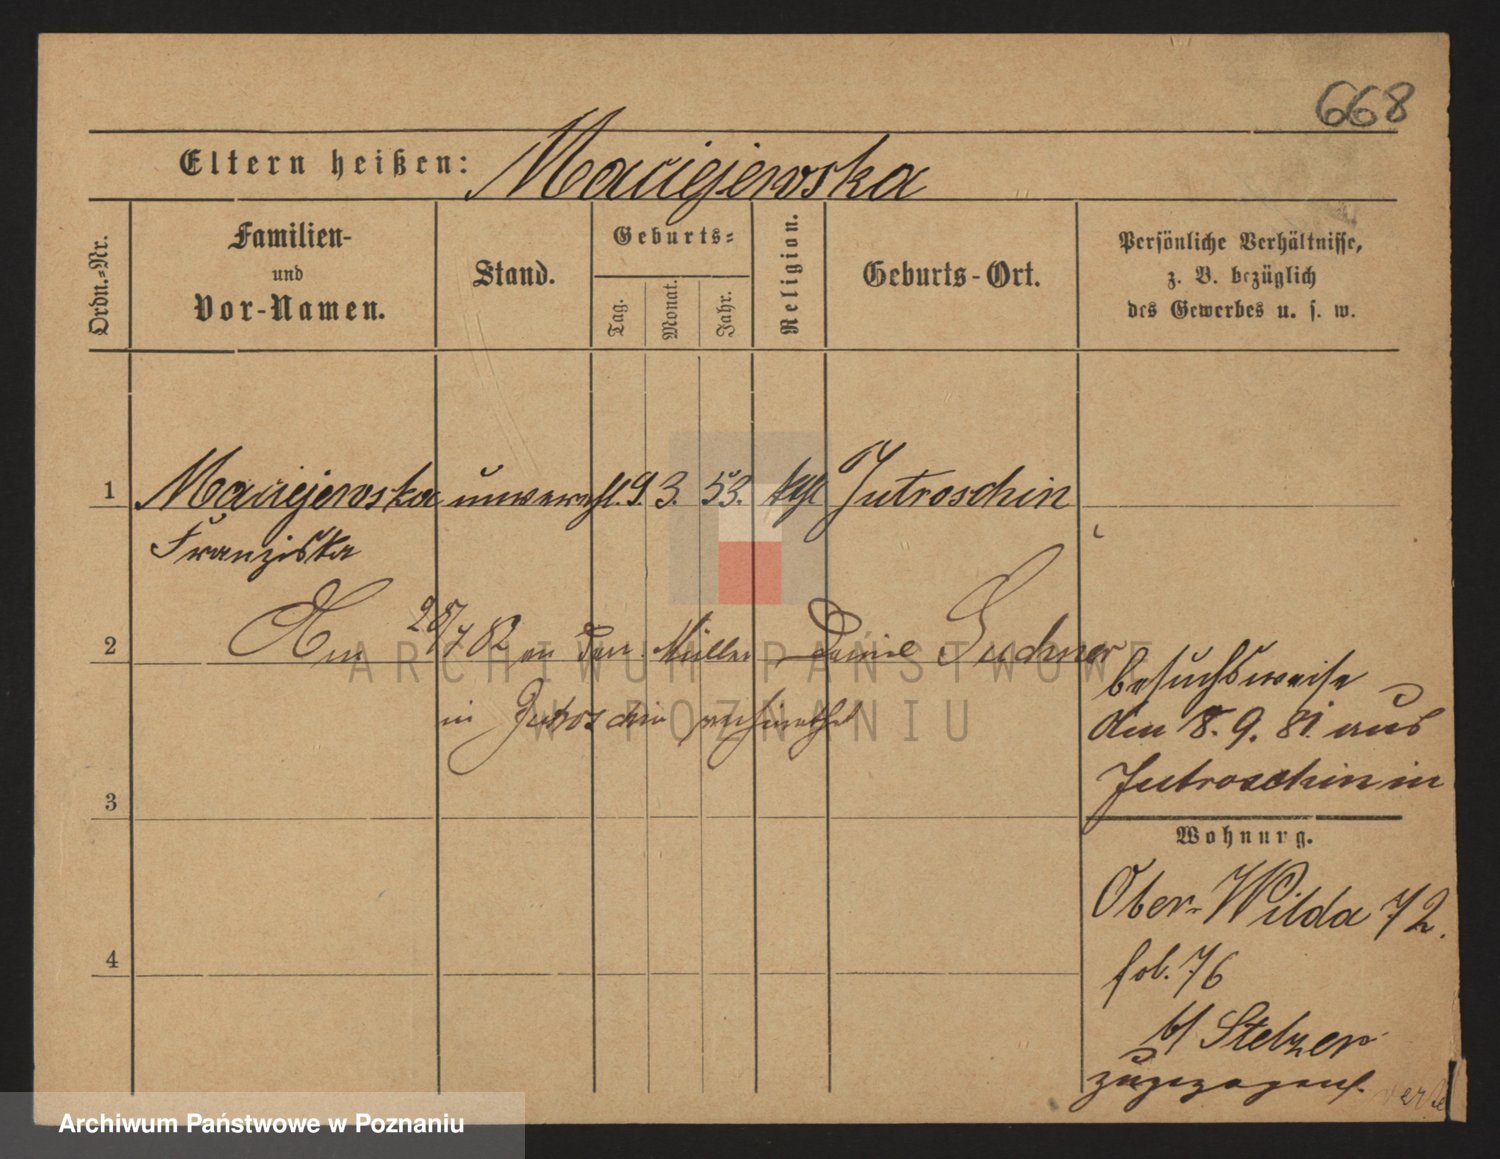 668
Eltern heißen: Maciejewska
Ordn.-Nr.
Familien-
und
Vor-Namen.
Stand.
Geburts-
Tag.
Monat.
Jahr.
Religion.
Geburts-Ort.
Persönliche Verhältnisse,
z. B. bezüglich
des Gewerbes u. s. w.
1 Maciejewska unvereh. 9. 3. 53. kth Jutroschin
Franziska
2 Am 28/7 82 an den Müller Daniel
in Jutroschin verheirathet
besuchsweise
den 8. 9. 81. aus
Jutroschin in
3
Wohnung.
Ober-Wilda 72.
fol. 76
b/ Stelzer
zugezogen.
4
ARCHIWUM PAŃSTWOWE
W POZNANIU
Archiwum Państwowe w Poznaniu